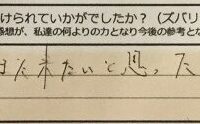 けられていかがでしたか？（ズバリ
感想が、私達の何よりの力となり今後の参考とな
また来たいと思った